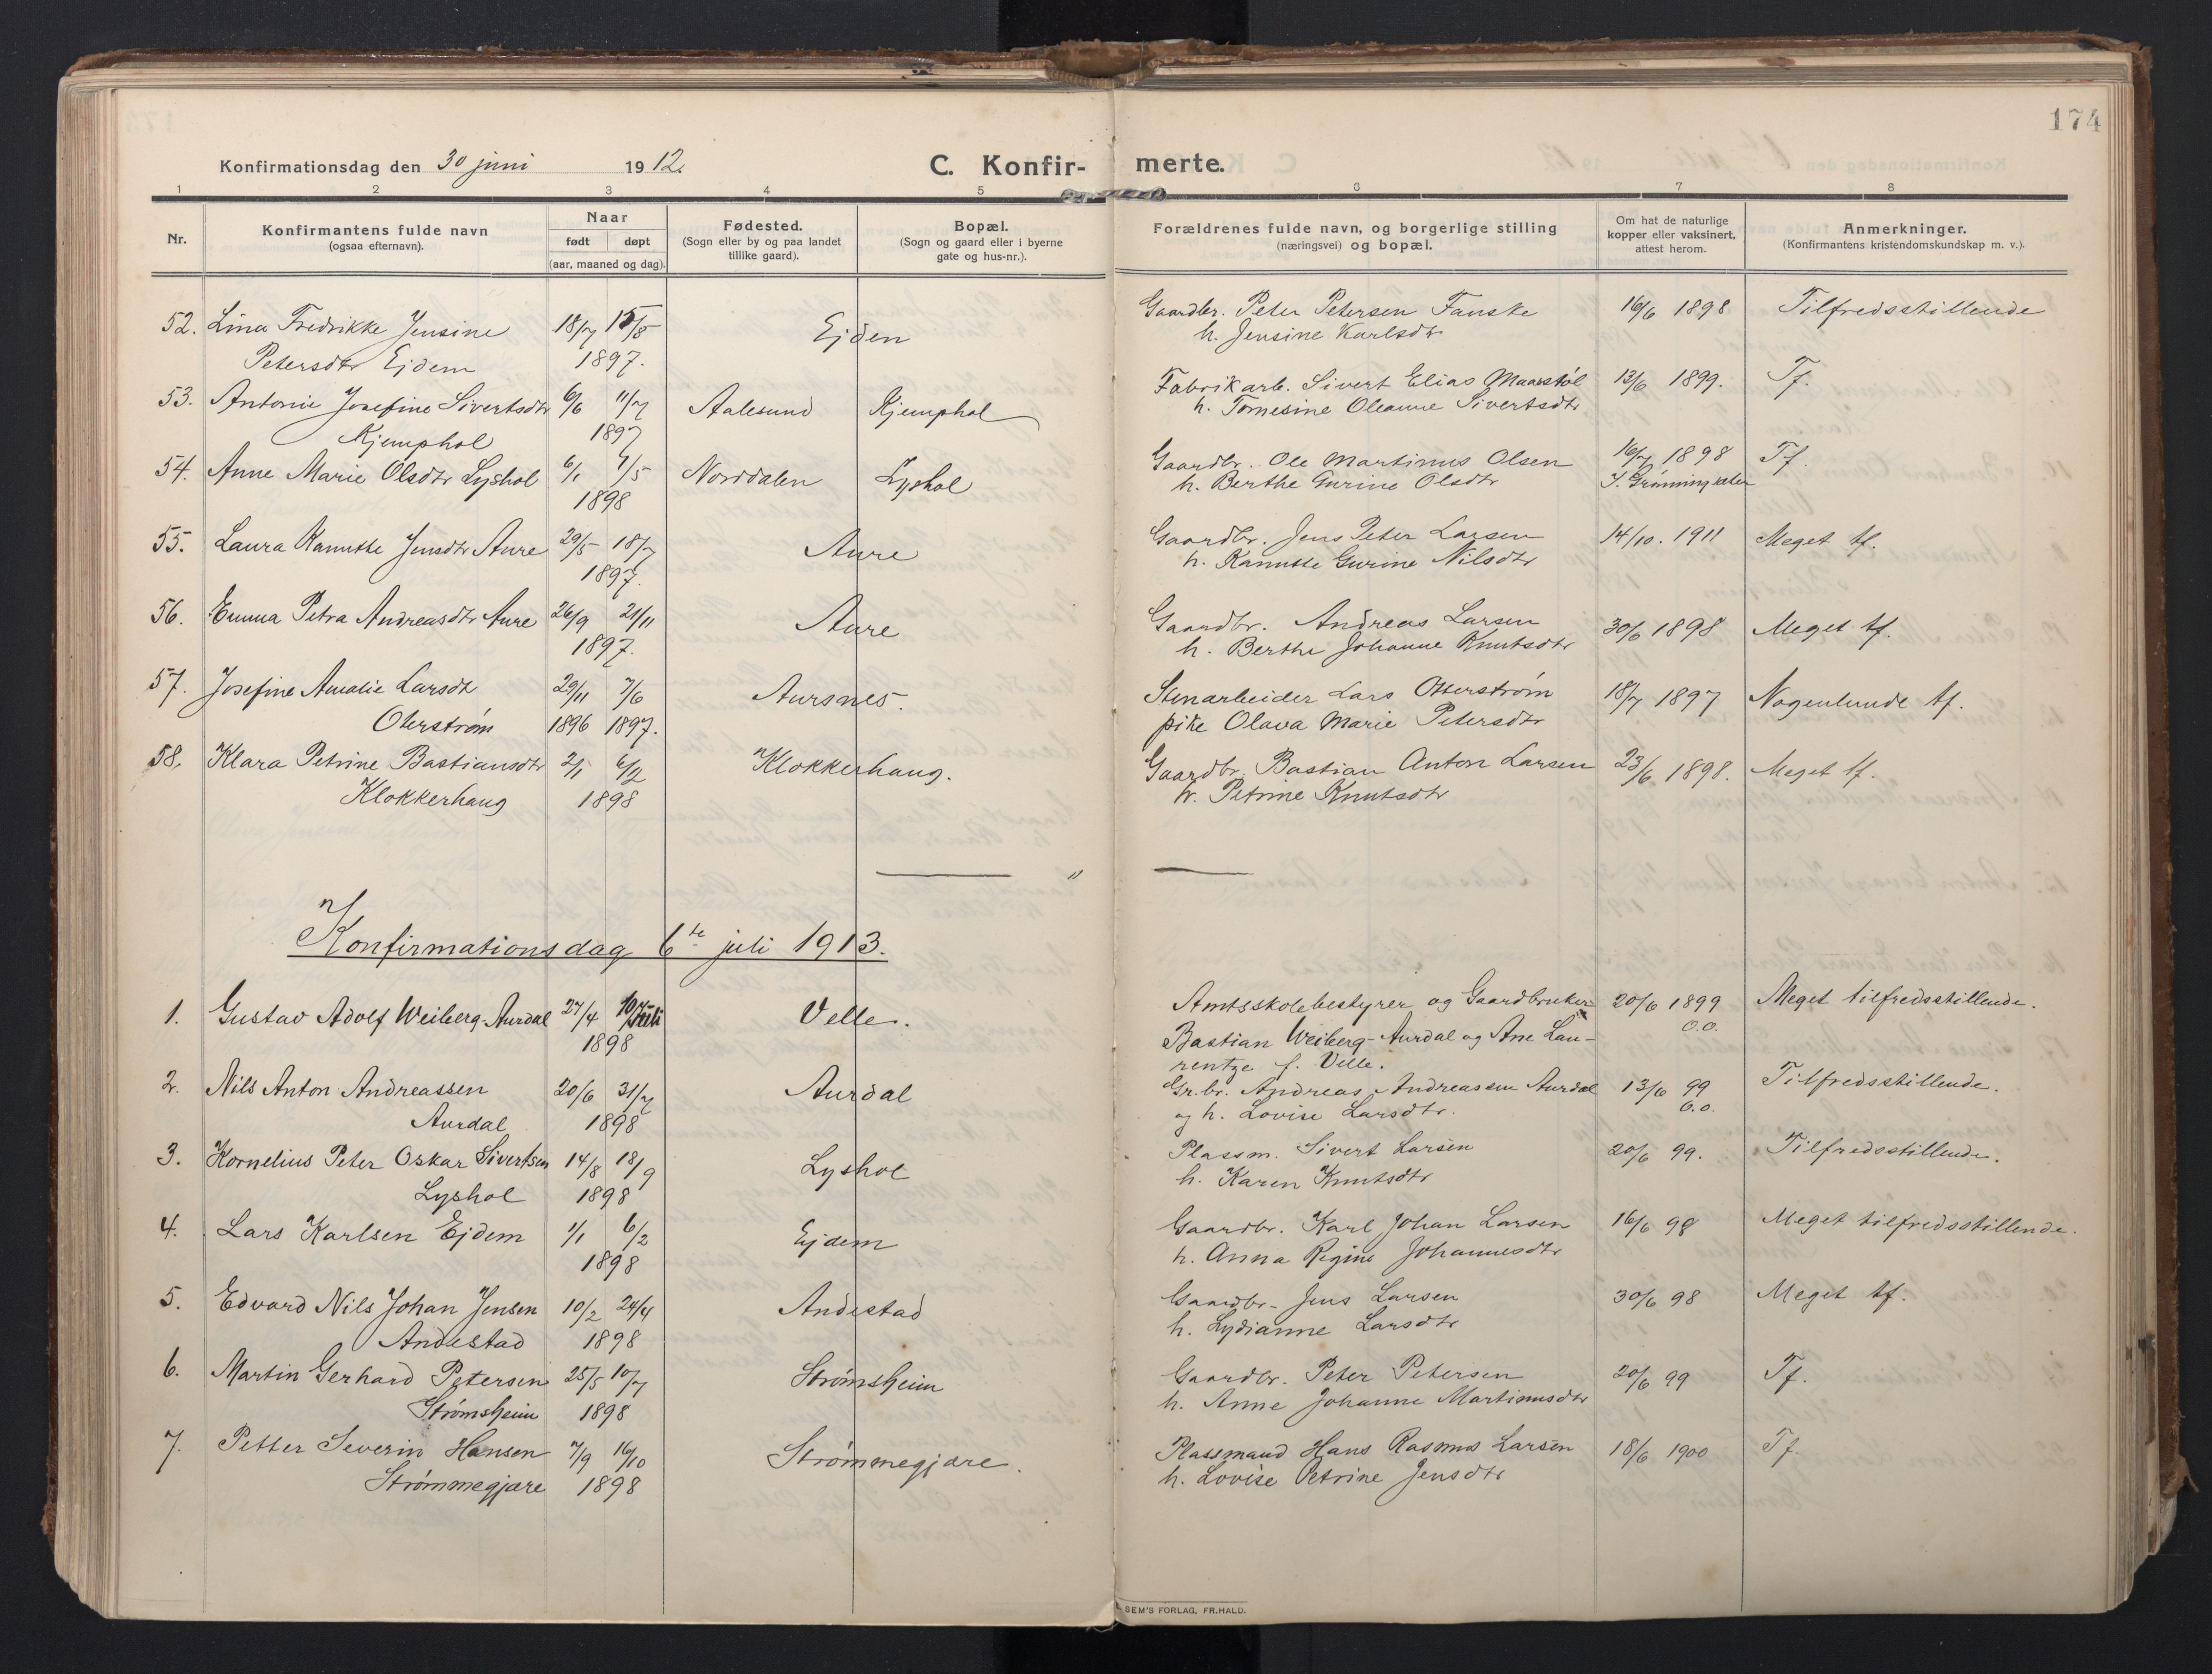 174
Konfirmationsdag den 30 juni 1912. C. Konfir- merte.
1 2 3 4 5 6 7 8
Nr. Konfirmantens fulde navn (ogsaa efternavn). Naar født døpt (aar, maaned og dag). Fødested. (Sogn eller by og paa landet tillike gaard). Bopæl. (Sogn og gaard eller i byerne gate og hus-nr.). Forældrenes fulde navn, og borgerlige stilling (næringsvei) og bopæl. Om hat de naturlige kopper eller vaksinert, attest herom. Anmerkninger. (Konfirmantens kristendomskundskap m. v.).
52. Lina Fredrikke Jensine 18/7 15/8 Ejden Gaardbr. Peter Petersen Fauske 16/6 1898 Tilfredsstillende
Petersdtr Ejdem 1897. h. Jensine Karlsdtr
53. Antonie Josefine Sivertsdtr 6/6 11/7 Aalesund Kjemphol Fabrikarb. Sivert Elias Maasstøl 13/6 1899. Tf.
Kjemphol 1897 h. Tomesine Oleanne Sivertsdtr
54. Anne Marie Olsdtr Lyshol 6/1 1/5 Norddalen Lyshol Gaardbr. Ole Martinus Olsen 16/7 1898 Tf.
1898 h. Berthe Gurine Olsdtr J. Grønningsæter
55. Laura Kanutte Jensdtr Aure 29/5 18/7 Aure Gaardbr. Jens Peter Larsen 14/10. 1911 Meget tf.
1897. h. Kanutte Gurine Nilsdtr
56. Emma Petra Andreasdtr Aure 26/9 21/11 Aure Gaardbr. Andreas Larsen 30/6 1898 Meget tf.
1897. h. Berthe Johanne Knutsdtr
57. Josefine Amalie Larsdtr 29/11 7/6 Aursnes. Stenarbeider Lars Otterstrøm 18/7 1897 Nogenlunde tf.
Oterstrøm 1896 1897. pike Olava Marie Petersdtr
58. Klara Petrine Bastiansdtr 2/1 6/2 Klokkerhaug. Gaardbr. Bastian Anton Larsen 23/6 1898. Meget tf.
Klokkerhaug 1898 h. Petrine Knutsdtr
Konfirmationsdag 6te juli 1913.
1. Gustav Adolf Weiberg-Aurdal 27/4 10/juli Velle. Amtsskolebestyrer og Gaardbruker 20/6 1899 Meget tilfredsstillende.
1898 Bastian Weiberg-Aurdal og Ane Lau- o.o.
rentze f. Velle.
2. Nils Anton Andreassen 20/6 31/7 Aurdal Gr.br. Andreas Andreassen Aurdal 13/6 99 Tilfredsstillende.
Aurdal 1898 og h. Lovise Larsdtr. o.o.
3. Kornelius Peter Oskar Sivertsen 14/8 18/9 Lyshol Plassm. Sivert Larsen 20/6 99. Tilfredsstillende.
Lyshol 1898 h. Karen Knutsdtr
4. Lars Karlsen Ejdem 1/1 6/2 Ejdem Gaardbr. Karl Johan Larsen 16/6 98 Meget tilfredsstillende.
1898 h. Anna Regine Johannesdtr
5. Edvard Nils Johan Jensen 10/2 24/4 Andestad Gaardbr. Jens Larsen 30/6 98 Meget tf.
Andestad 1898 h. Lydianne Larsdtr
6. Martin Gerhard Petersen 25/5 10/7 Strømsheim Gaardbr. Peter Petersen 20/6 99 Tf.
Strømsheim 1898 h. Anne Johanne Martinusdtr
7. Petter Severin Hansen 7/9 16/10 Strømmegjære. Plassmand Hans Rasmus Larsen 18/6 1900 Tf.
Strømmegjære 1898 h. Lovise Petrine Jensdtr
SEM'S FORLAG, FR.HALD.